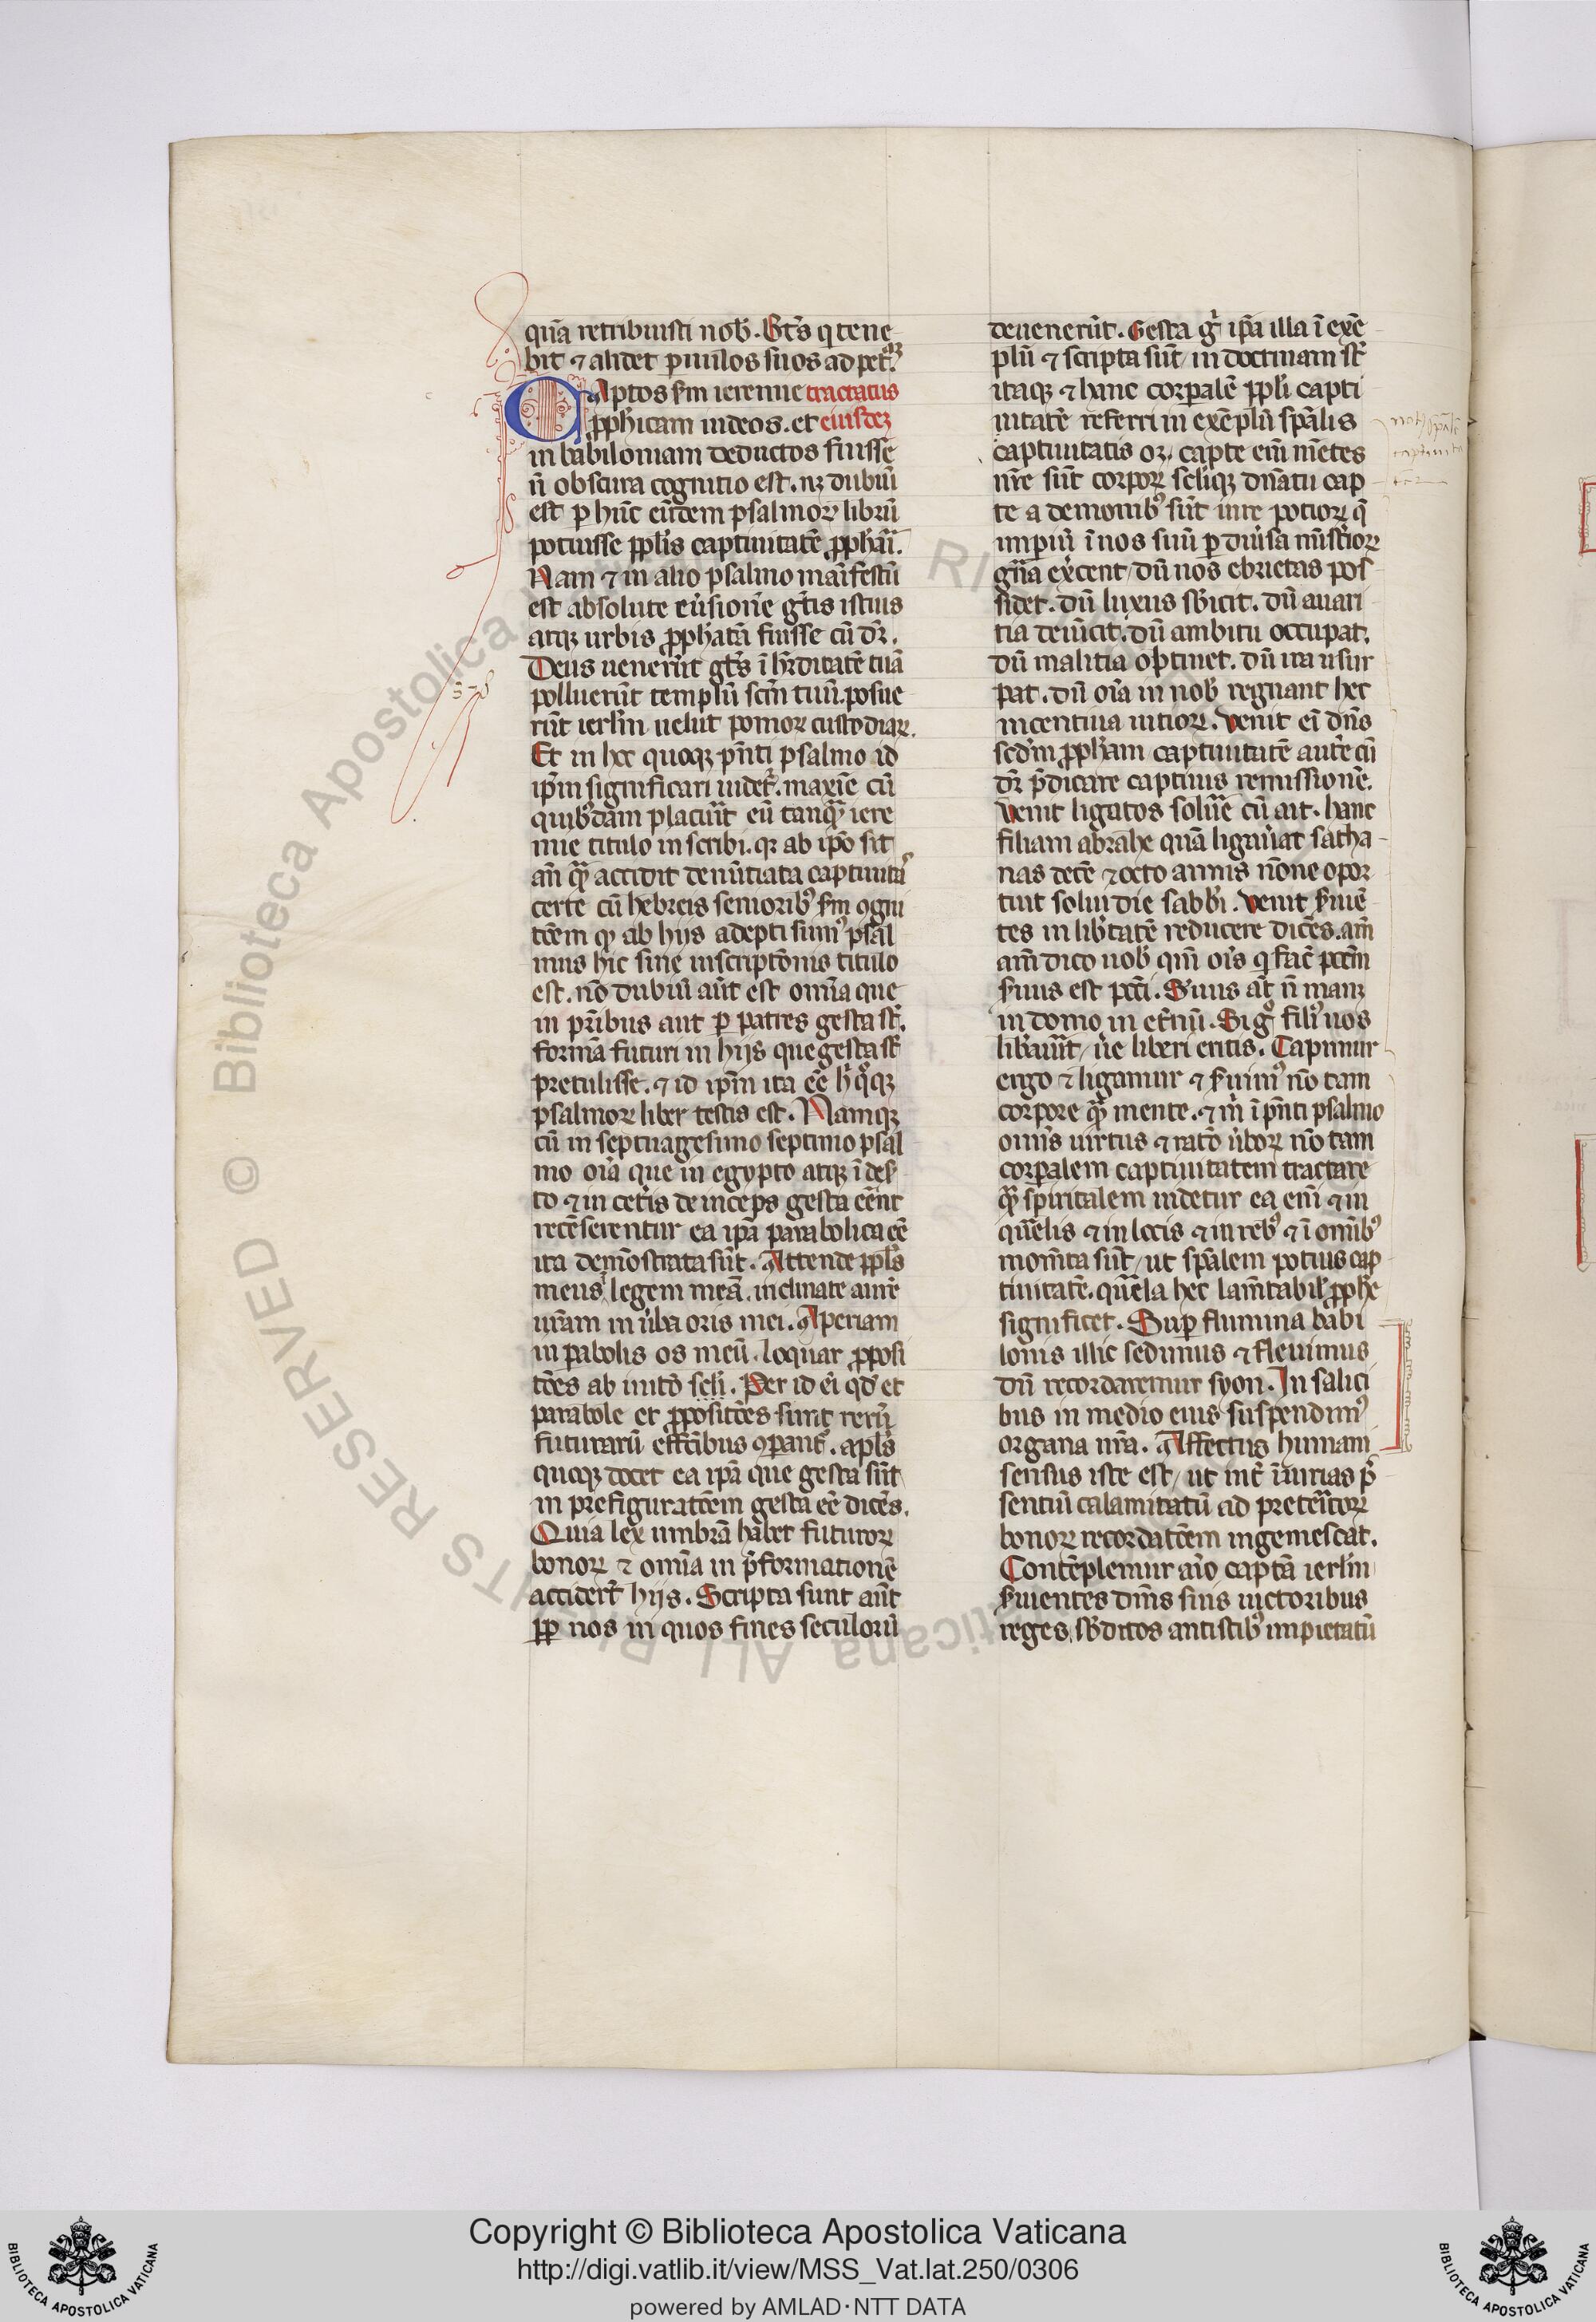 quā retribuisti nob̄. Bt̄s q tene
bit ⁊ alidet ꝑuulos suos ad pet̄ꝝ
CAptos s̄m ieremie tractatus
ꝓph̄icam iudeos. et eiusdeꝫ
in babiloniam deductos fuisse
n̄ obscura cognitio est. nꝫ dubiū
est ꝑ hūc eūdem psalmoꝝ librū
potuisse ppl̄is captiuitatē ꝓph̄ari.
Nam ⁊ in alio psalmo maīfestū
est absolute eūsionē gt̄is istius
atqꝫ urbis ꝓph̄atā fuisse cū dr̄.
Deus uenerūt gt̄s ī hr̄ditatē tuā
polluerūt templū scm̄ tuū. posue
rūt ierlm̄ uelut pomoꝝ custodiaꝝ.
Et in hoc quoqꝫ pn̄ti psalmo id
ip̄m significari uidet̄. maxīe cū
quibꝰdam placuīt eū tanqꝫ iere
mie titulo inscribi. qꝛ ab ip̄o sit
an̄ qꝫ accidit denūtiata captiuitas
certe cū hebreis senioribꝰ s̄m ꝯgni
tōem qꝫ ab hijs adepti sumꝰ psal
mus hic sine inscriptōnis titulo
est. nō dubiū aūt est omīa que
in pr̄ibus aut ꝑ patres gesta st̄.
formā futuri in hijs que gesta st̄
pretulisse. ⁊ id ip̄m ita eē h̄ qͦqꝫ
psalmoꝝ liber testis est. Namqꝫ
cū in septuagesimo septimo psal
mo oīa que in egypto atqꝫ ī des
to ⁊ in cet̄is deinceps gesta eēnt
recēserentur ea ip̄a parabolica eē
ita demōstrata sūt. Attende ppl̄s
meus legem meā. inclinate aurē
ur̄am in ūba oris mei. Aperiam
in ꝑabolis os meū. loquar ꝓposi
tōes ab initō scl̄i. Per id ei qd̄ et
parabole et ꝓpositōes sunt rerū
futurarū effc̄ibus ꝯparant̄. apl̄s
quoqꝫ docet ea ip̄a que gesta sūt
in prefiguratōem gesta eē dicēs.
Quia lex umbrā habet futuroꝝ
bonoꝝ ⁊ omīa in p̄formationē
accidert̄ hijs. Scripta sunt aūt
ꝓp̄ nos in quos fines seculorū
deuenerūt. Gesta gͥ ip̄a illa ī exē
plū ⁊ scripta sūt in doctrinam st̄
itaqꝫ ⁊ hanc corꝑalē ppl̄i capti
uitatē referri in exēplū sp̄alis
captiuitatis oꝫ. capte eīn mētes
nr̄e sūt corpoꝝ sel̄iqꝫ dn̄atu cap
te a demonibꝰ sūt inte potioꝝ qͥ
imperiū ī nos suū ꝑ diūsa mīst̄ioꝝ
gn̄a exc̄ent dū nos ebrietas pos
sidet. dū luxus sb̄icit. dū auari
tia deuīcit. dū ambitu occupat.
dū malitia optinet. dū ira usur
pat. dū oīa in nob̄ regnant hec
incentiua uitioꝝ. Venit ei dn̄s
sed̄m ꝓph̄am captiuitatē auēte cū
dr̄ p̄dicare captiuis remissionē.
Venit ligatos soluē cū ait. hanc
filiam abrahe quā ligauāt satha
nas decē ⁊ octo annis nōne opor
tuit solui die sabb̄i. Venit ẜuiē
tes in lib̄tatē reducere dicēs. amī
amī dico uob̄ qm̄ oīs q̄ fac̄ pc̄m
ẜuus est pc̄ti. Suus at̄ n̄ manꝫ
in domo in etn̄ū. Si gͦ filiꝰ uos
lib̄auīt ue liberi eritis. Capimur
ergo ⁊ ligamur ⁊ ẜuimꝰ nō tam
corpore qꝫ mente. ⁊ in̄ ī pn̄ti psalmo
omīs uirtus ⁊ ratō ūboꝝ nō tam
corꝑalem captiuitatem tractare
qꝫ spiritalem uidetur ea eīn ⁊ in
quēlis ⁊ in locis ⁊ in rebꝰ ⁊ ī omībꝰ
momīta sūt ut sp̄alem potius cap
tiuitatē. quēla hec lam̄tabil̄ ꝓph̄e
significet. Suꝑ flumina babi
lonis illic sedimus ⁊ fleuimus
dū recordaremur syon. In salici
bus in medio eius suspendimꝰ
organa nr̄a. Affectus humani
sensus iste est ut int̄ iniurias p̄
sentiū calamitatū ad pretēitoꝝ
bonoꝝ recordatōem ingemescat.
Contēplemur aīo captā ierlm̄
ẜuientes dn̄is suis uictoribus
reges. sb̄ditos antistibꝰ impietatū
Copyright © Biblioteca Apostolica Vaticana
http://digi.vatlib.it/view/MSS_Vat.lat.250/0306
powered by AMLAD·NTT DATA